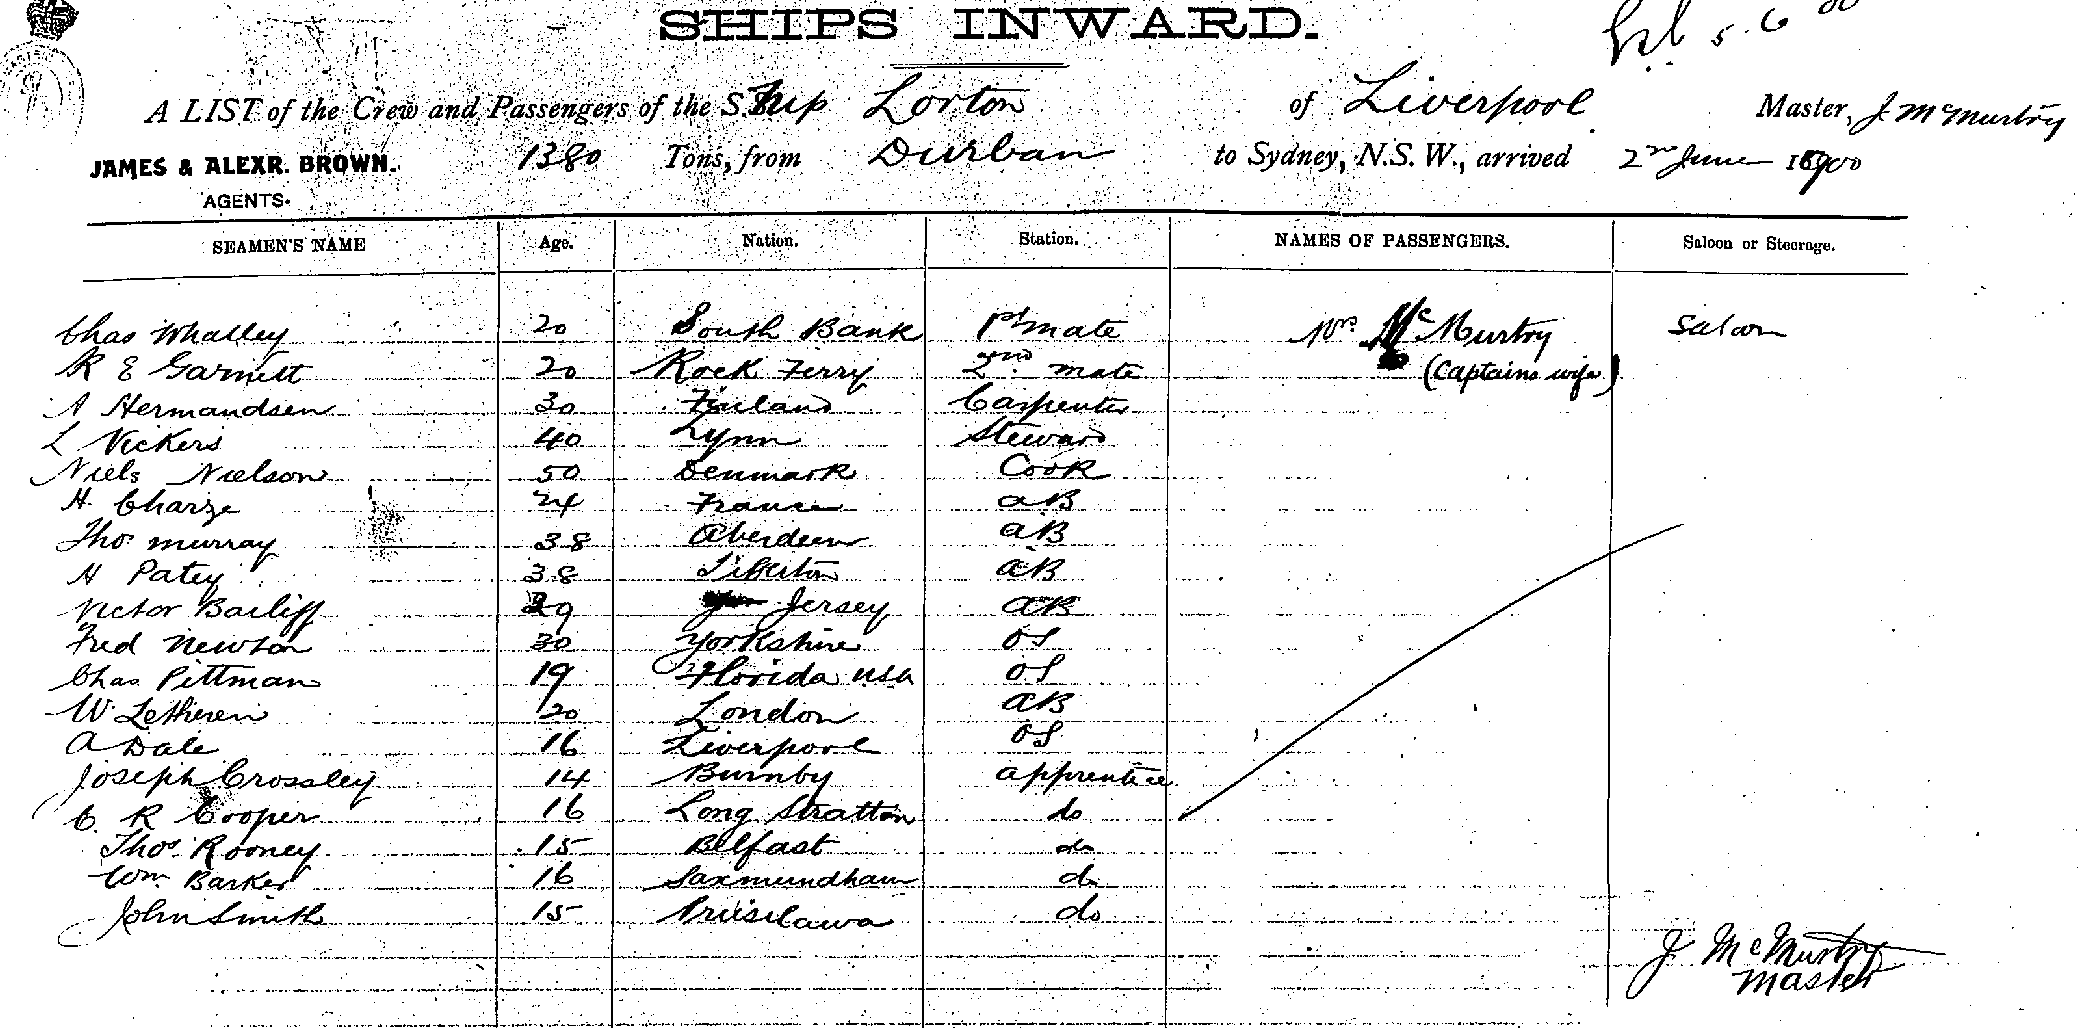 SHIPS INWARD.
5.6.00
A LIST of the Crew and Passengers of the S. Ship Lorton of Liverpool Master, J. McMurtry
JAMES & ALEXR. BROWN. 1380 Tons, from Durban to Sydney, N.S.W., arrived 2nd June 1900
AGENTS.
SEAMEN'S NAME Age. Nation. Station. NAMES OF PASSENGERS. Saloon or Steerage.
Chas Whalley 20 South Bank 1st mate Mrs. McMurtry Saloon
R E Garnett 20 Rock Ferry 2nd mate (Captains wife)
A Hermandsen 30 Finland Carpenter
L Vickers 40 Lynn Steward
Niels Nielson 50 Denmark Cook
H. Charze 24 France AB
Thos Murray 38 Aberdeen AB
H Patey 38 AB
Victor Bailiff 29 Jersey AB
Fred Newton 30 Yorkshire OS
Chas Pittman 19 Florida USA OS
W. Letheren 20 London AB
A Dale 16 Liverpool OS
Joseph Crossley 14 Burnby apprentice
C. R Cooper 16 Long Stratton do
Thos Rooney 15 Belfast do
Wm Barker 16 Saxmundham do
John Smith 15 do
J McMurtry
Master